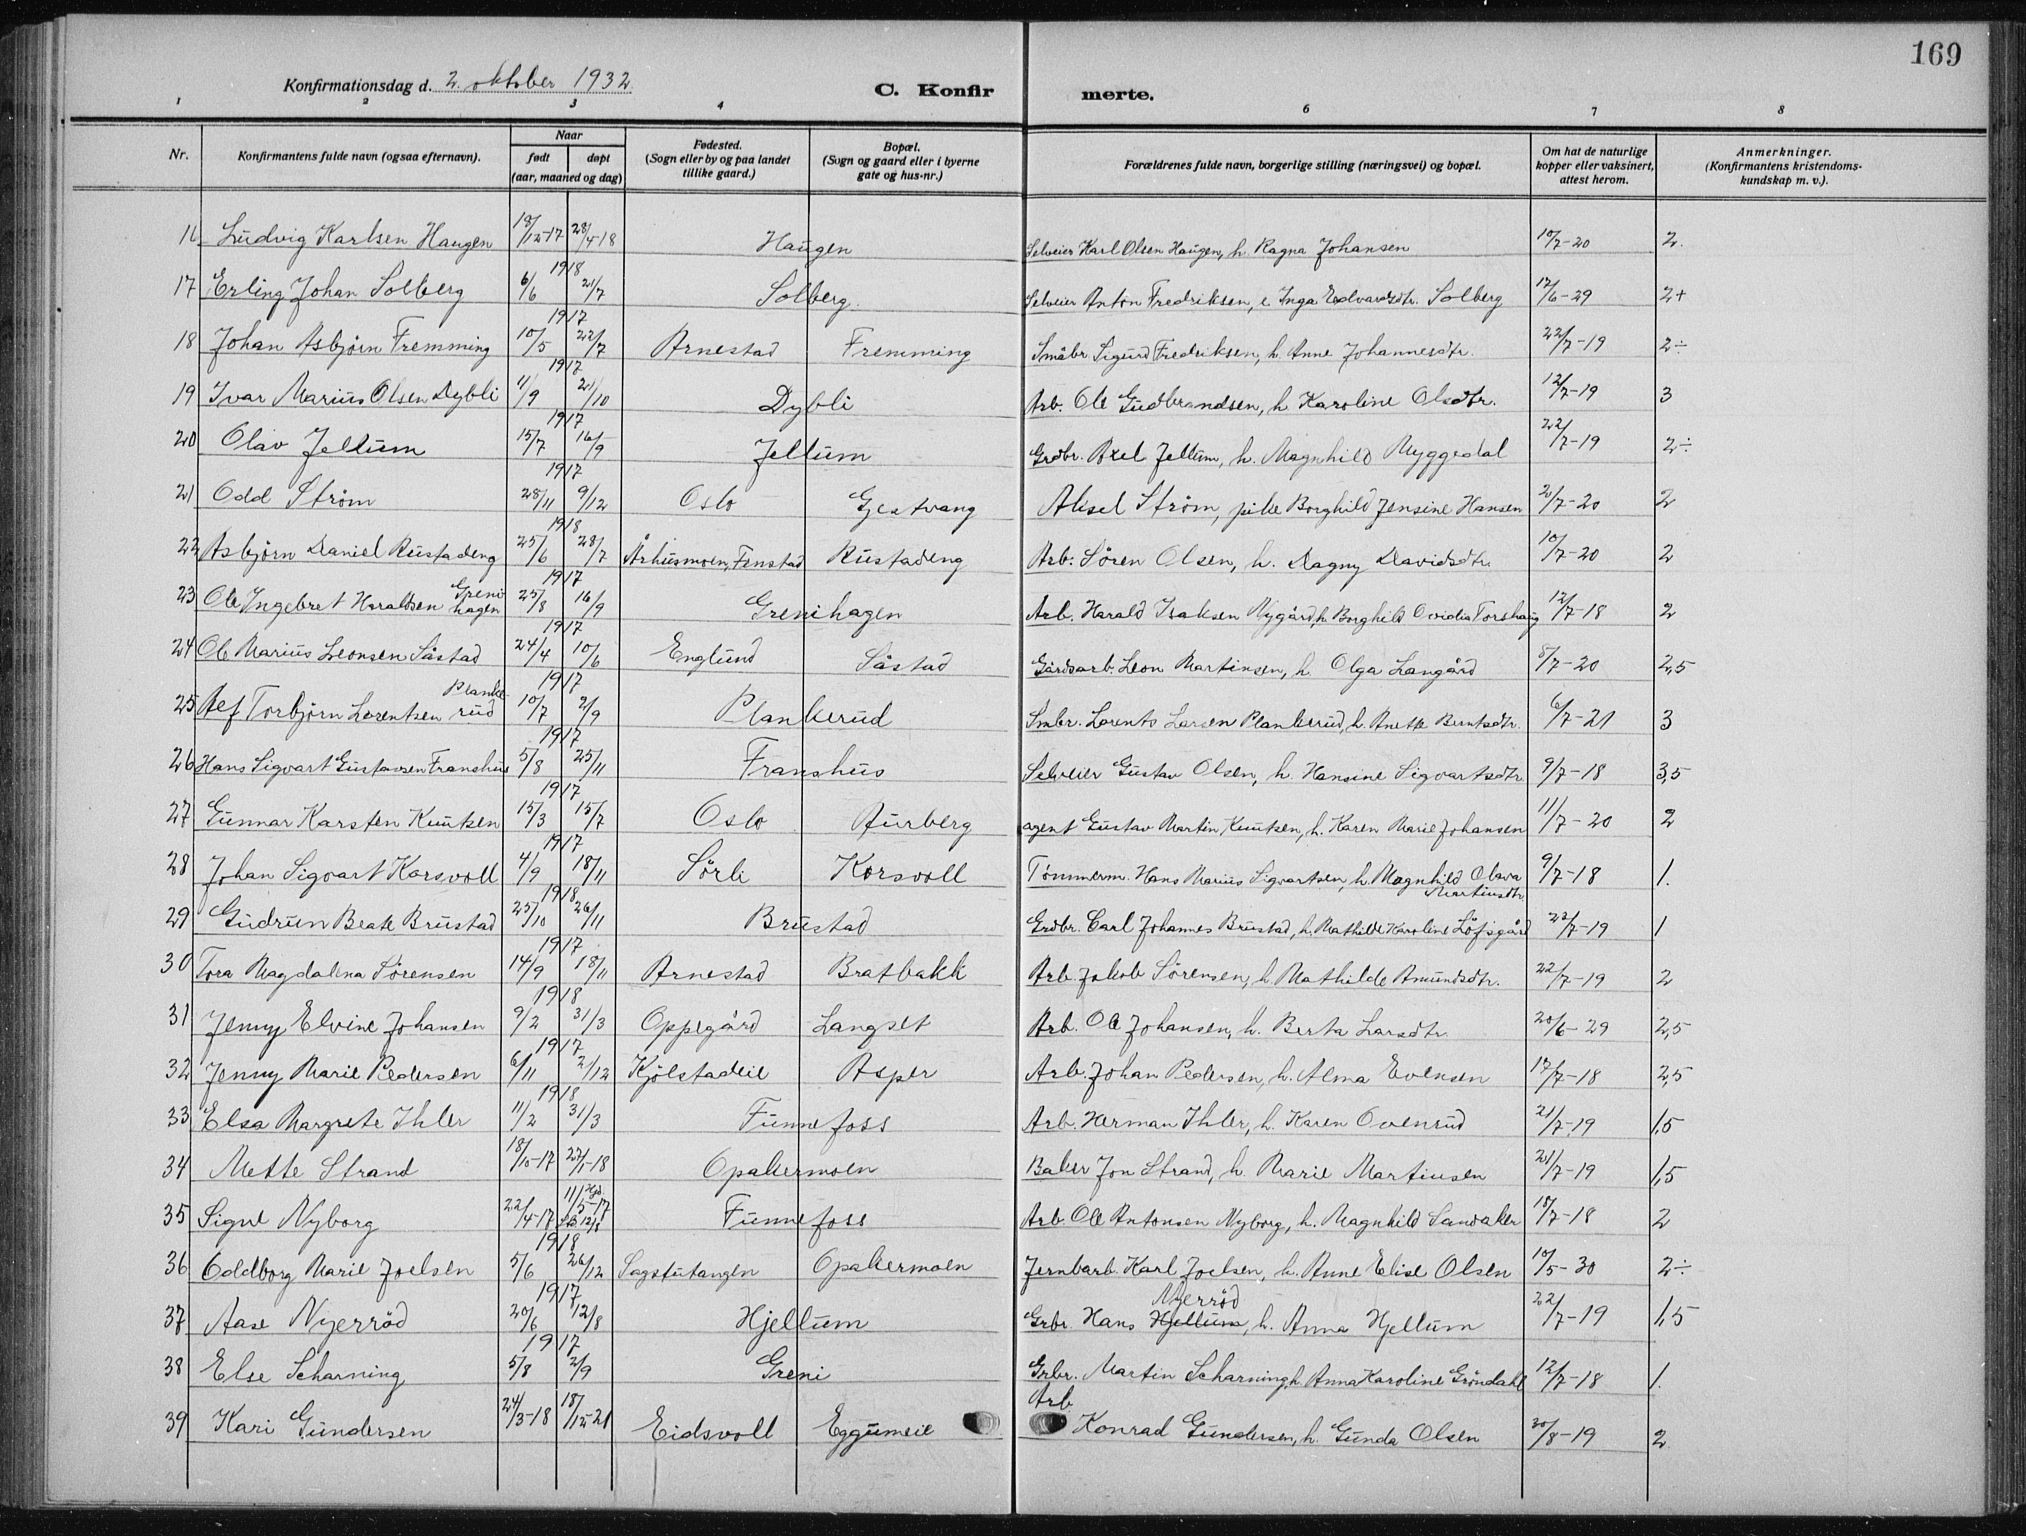 169
Konfirmationsdag d. 2. oktober 1932.
C. Konfirmerte.
1 2 3 4 6 7 8
Nr.
Konfirmantens fulde navn (ogsaa efternavn).
Naar
født døpt
(aar, maaned og dag)
Fødested.
(Sogn eller by og paa landet
tillike gaard.)
Bopæl.
(Sogn og gaard eller i byerne
gate og hus-nr.)
Forældrenes fulde navn, borgerlige stilling (næringsvei) og bopæl.
Om hat de naturlige
kopper eller vaksinert,
attest herom.
Anmerkninger.
(Konfirmantens kristendoms-
kundskap m. v.).
16 Ludvig Karlsen Haugen 18/12-17 28/4-18 Haugen Selveier Karl Olsen Haugen, h. Ragna Johansen 10/7-20 2.
1918
17 Erling Johan Solberg 6/6 21/7 Solberg. Selveier Anton Fredriksen, e. Inga Edvardsdtr. Solberg 12/6-29 2+
1917
18 Johan Asbjørn Fremming 10/5 22/7 Arnestad Fremming Småbr. Sigurd Fredriksen, h. Anne Johannesdtr. 22/7-19 2÷
1917
19 Ivar Marius Olsen Dybli 11/9 21/10 Dybli Arb. Ole Gudbrandsen, h. Karoline Olsdtr. 12/7-19 3
1917
20 Olav Jellum 15/7 16/9 Jellum Grdbr. Axel Jellum, h. Magnhild Myggedal 22/7-19 2÷
1917
21 Odd Strøm 28/11 9/12 Oslo Gjestvang Aksel Strøm, pike Borghild Jensine Hansen 2/7-20 2
1918
22 Asbjørn Daniel Rustadeng 25/6 28/7 Århusmoen, Fenstad Rustadeng Arb. Sören Olsen, h. Dagny Davidsdtr. 10/7-20 2
1917
23 Ole Ingebret Haraldsen Greni-hagen 25/8 16/9 Grenihagen Arb. Harald Isaksen Nygård, h. Borghild Ovidia Torshaug 12/7-18 2
1917
24 Ole Marius Leonsen Såstad 24/4 10/6 Englund Såstad Gårdsarb. Leon Martinsen, h. Olga Langård 8/7-20 2,5
1917
25 Alf Torbjørn Lorentsen Planke-rud 10/7 2/9 Plankerud Smbr. Lorents Larsen Plankerud, h. Anette Berntsdtr. 6/7-21 3
1917
26 Hans Sigvart Gustavsen Franshus 5/8 25/11 Franshus Selveier Gustav Olsen, h. Hansine Sigvartsdtr. 9/7-18 3,5
1917
27 Gunnar Karsten Knutsen 15/3 15/7 Oslo Aurberg agent Gustav Martin Knutsen, h. Karen Marie Johansen 11/7-20 2
1917
28 Johan Sigvart Korsvoll 4/9 18/11 Sørli Korsvoll Tømmerm. Hans Marius Sigvartsen, h. Magnhild Olava Martinsdtr. 9/7-18 1.
1918
29 Gudrun Beate Brustad 25/10 26/11 Brustad Grdbr. Carl Johannes Brustad, h. Mathilde Karoline Löfsgård 22/7-19 1
1917
30 Tora Magdalena Sörensen 14/9 18/11 Arnestad Bratbakk Arb. Jakob Sörensen, h. Mathilde Amundsdtr. 22/7-19 2
1918
31 Jenny Elvine Johansen 9/2 31/3 Oppegård Langset Arb. Ole Johansen, h. Berta Larsdtr. 20/6-29 2,5
1917
32 Jenny Marie Pedersen 6/11 2/12 Kjölstadeie Asper Arb. Johan Pedersen, h. Alma Evensen 17/7-18 2,5
1918
33 Elsa Margrete Ihler 11/2 31/3 Funnefoss Arb. Herman Ihler, h. Karen Ovenrud 21/7-19 1,5
34 Mette Strand 18/10-17 27/1-18 Opakermoen Baker Jon Strand, h. Marie Martinsen 21/7-19 1,5
35 Signe Nyborg 22/4-17 11/5-17 Funnefoss Arb. Ole Antonsen Nyborg, h. Magnhild Sandaker 18/7-18 2
1918
36 Oddborg Marie Joelsen 5/6 26/12 Sagstutangen Opakermoen Jernbarb. Karl Joelsen, h. Anne Elise Olsen 10/5-30 2÷
1917
37 Aase Nyerrød 20/6 12/8 Hjellum Grbr. Hans Hjellum Nyerrød, h. Anna Hjellum 22/7-19 1,5
1917
38 Else Scharning 5/8 2/9 Greni Grbr. Martin Scharning, h. Anna Karoline Gröndahl 12/7-18 1.
39 Kari Gundersen 24/3-18 18/12-21 Eidsvoll Eggumeie Arb. Konrad Gundersen, h. Gunda Olsen 30/8-19 2